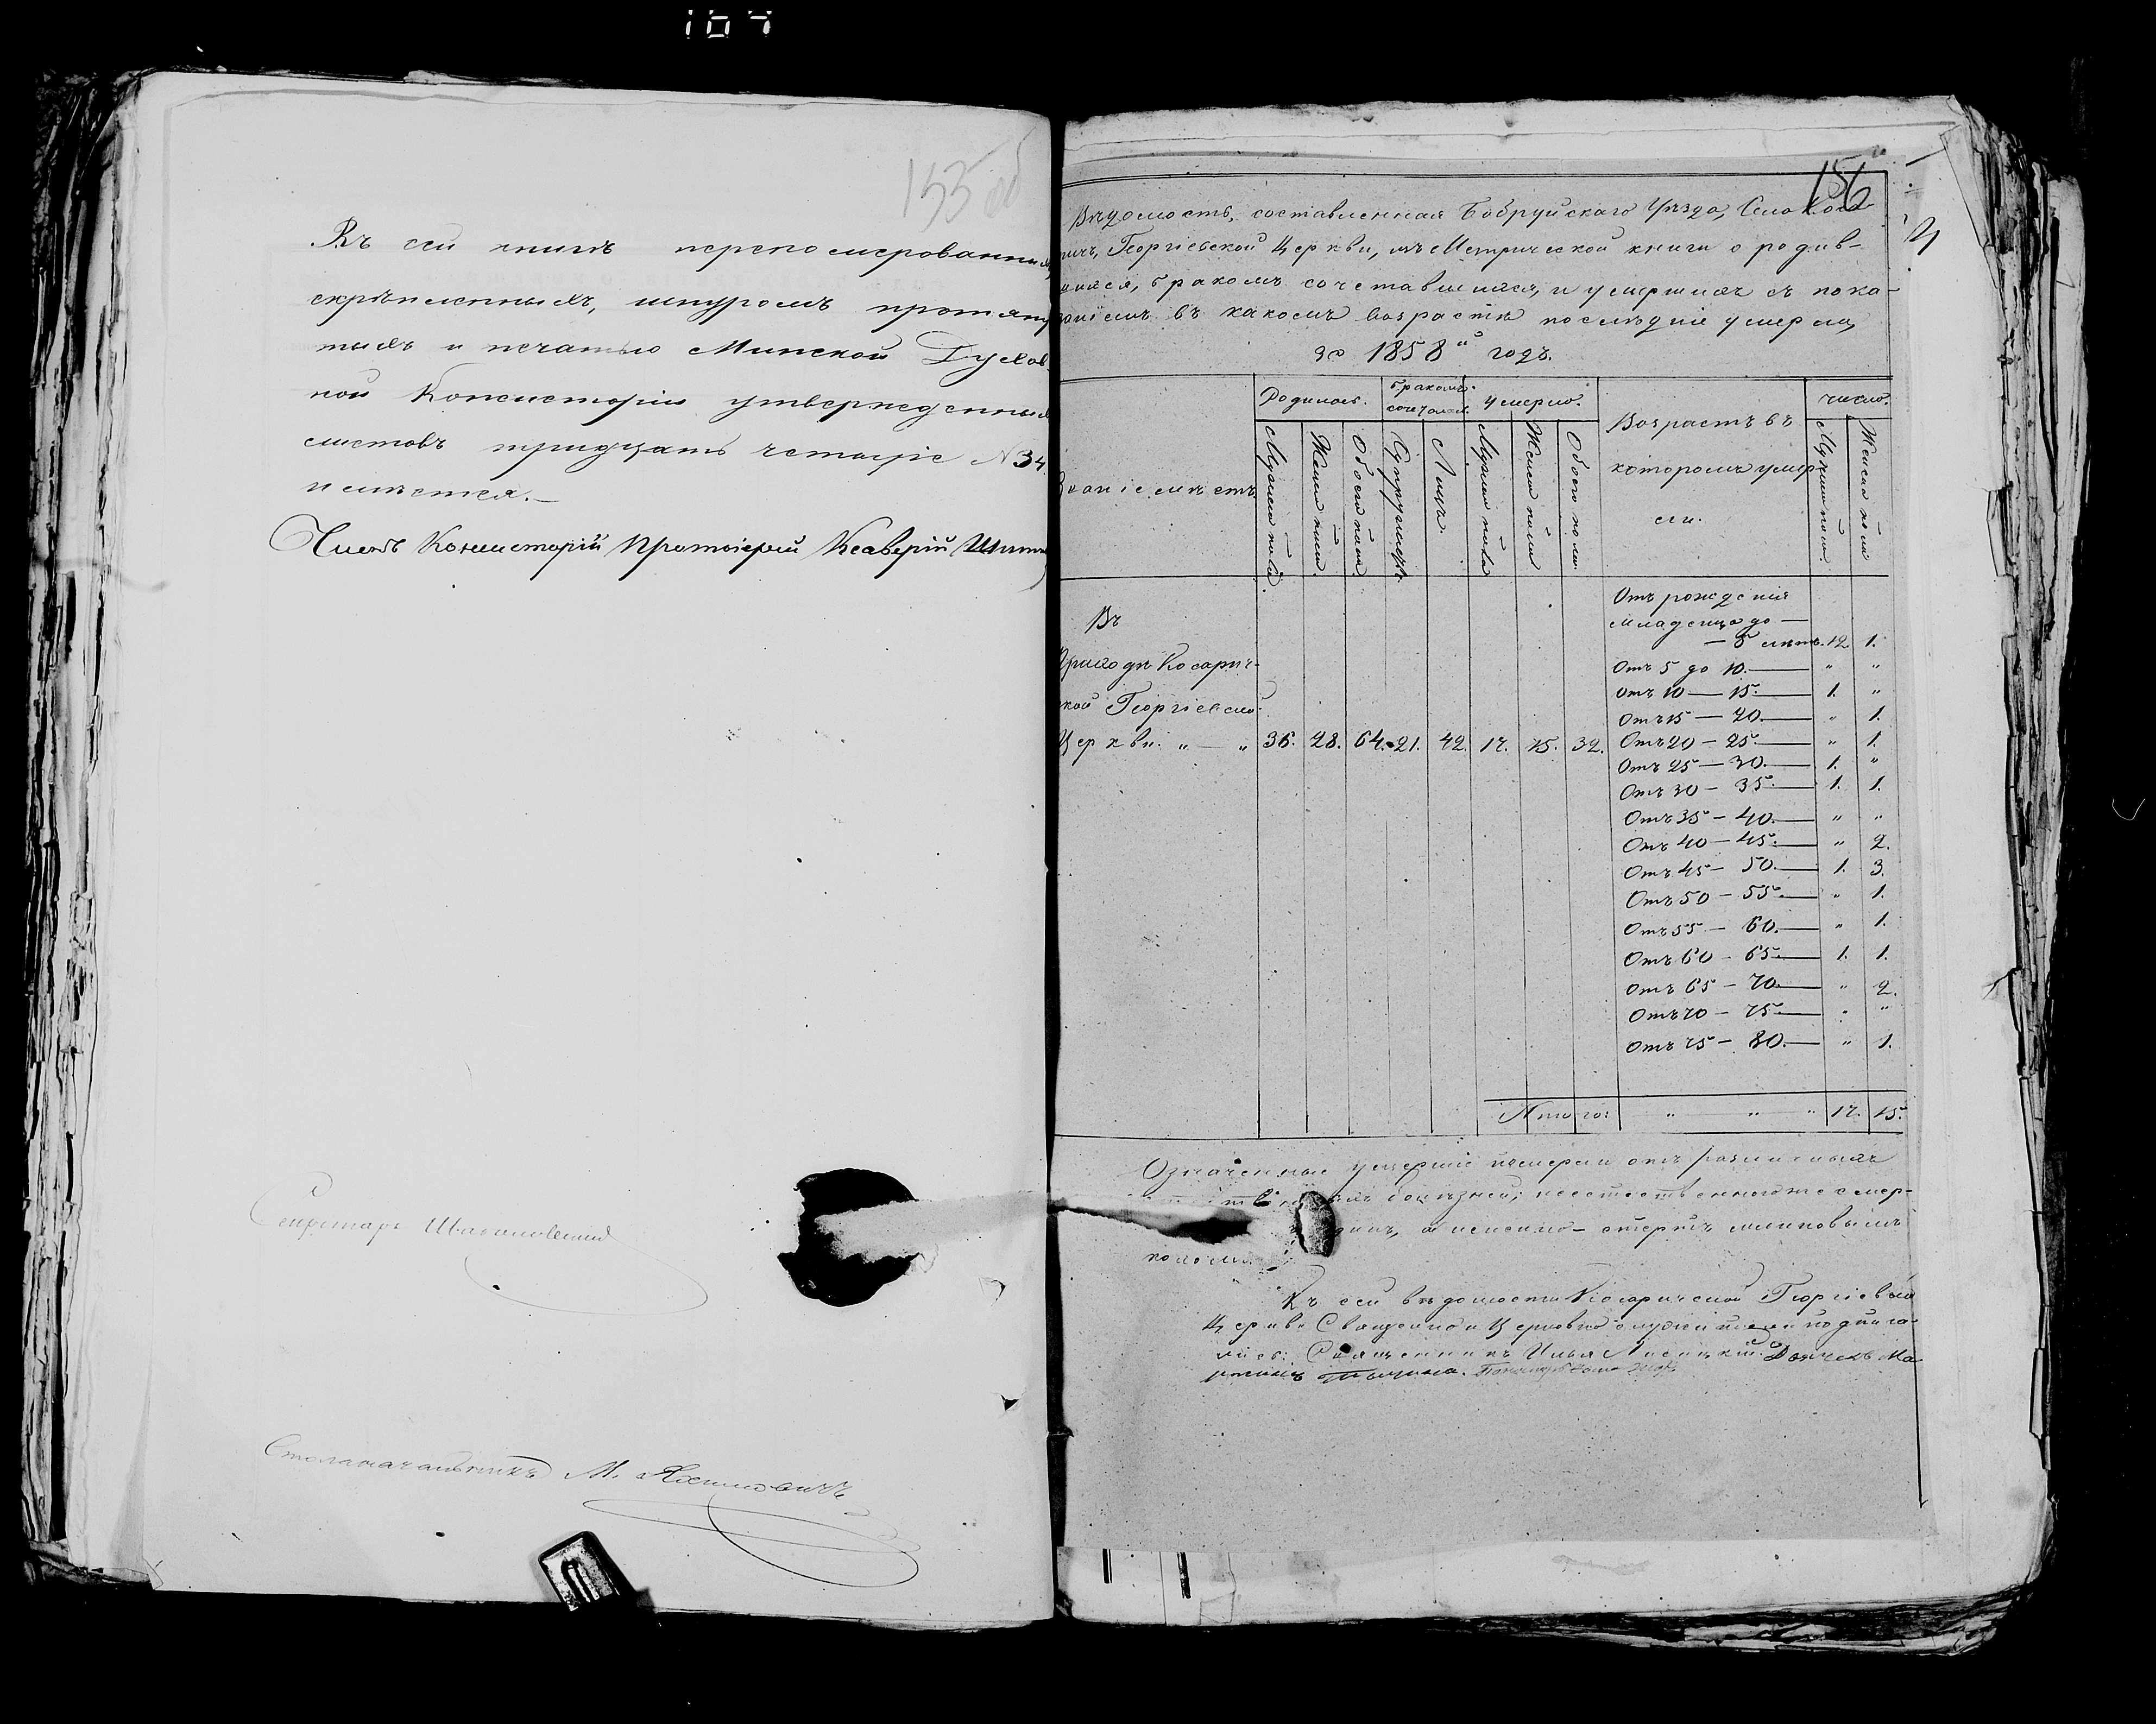 107
153 об
Въ сей книгѣ перепомерованныхъ,
скрѣпленныхъ, шнуромъ протяну
тыхъ и печатью Минской Духов
ной Консисторіи утвержденныхъ
листовъ тридцать четыре N 34
имѣется.—
Членъ Консисторіи Протоіерей Ксаверій
Секретарь
Столоначальникъ М.
156
Вѣдомость, составленная Бобруйскаго Уѣзда, Села Коса
ричъ, Георгіевской Церкви, изъ Метрической книги о родив-
шихся, бракомъ сочетавшихся, и умершихъ съ пока-
заніемъ въ какомъ возрастѣ послѣдніе умерли,
за 1858й годъ.
Званіе мѣстъ.
Родилось.
Мужеска пола.
Женска пола.
Обоего пола.
бракомъ сочеталось.
Супружествъ.
Лицъ.
умерло.
Мужеска пола
Женска пола
Обоего пола.
Возрастъ въ
которомъ умер-
ли.
число.
Мужеска пола.
Женска пола
Въ
Приходѣ Косарич-
ской Георгіевской
Церкви. „ — „ 36. 28. 64. 21. 42. 17. 15. 32.
Отъ рожденія
младенца до —
— 5 лѣтъ. 12 1.
Отъ 5 до 10. — „ „
Отъ 10 — 15. — 1. „
Отъ 15 — 20. — „ 1.
Отъ 20 — 25. — „ 1.
Отъ 25 — 30. — 1. „
Отъ 30 — 35. — 1. 1.
Отъ 35 — 40. — „ „
Отъ 40 — 45. — „ 2.
Отъ 45 — 50. — 1. 3.
Отъ 50 — 55. — „ 1.
Отъ 55 — 60. — „ 1.
Отъ 60 — 65. — 1. 1.
Отъ 65 — 70. — „ 2.
Отъ 70 — 75. — „ „
Отъ 75 — 80. — „ 1.
Итого: „ „ „ 17. 15.
Означенные умершіе померли отъ различныхъ
болѣзней; неестественною же смер-
а именно
Къ сей вѣдомости Косаричской Георгіевской
Церкви Священно и Церковно служители подписа-
лись: Священникъ Илья Лисицкій. Дьячекъ Ма
ртинъ Тычина.